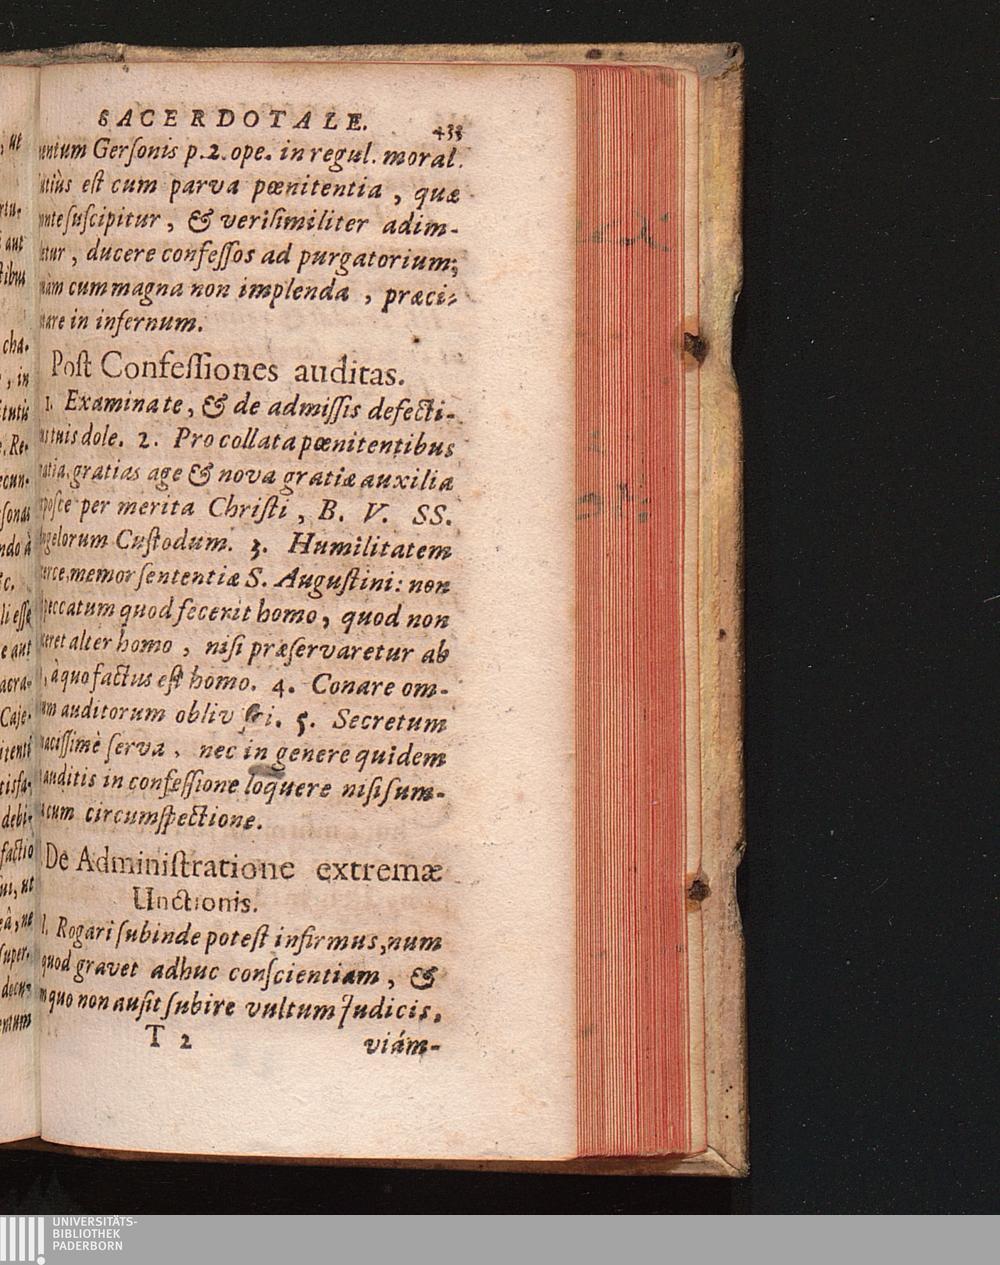 SACERDOTALE.
entum Gerſonis p. 2. ope. in regul. moral.
ùs eſt cum parva pœnitentia, quæ
ſuſcipitur, & veriſimiliter adim-
etur, ducere confeſſos ad purgatorium;
àm cum magna non implenda, præci-
are in infernum.
Poſt Confeſſiones auditas.
1. Examina te, & de admiſſis defecti-
tuis dole. 2. Pro collata pœnitentibus
atia, gratias age & nova gratiæ auxilia
poſce per merita Chriſti, B. V. SS.
gelorum Cuſtodum. 3. Humilitatem
erce, memor ſententiæ S. Auguſtini: non
peccatum quod fecerit homo, quod non
ceret alter homo, niſi præſervaretur ab
, à quo factus eſt homo. 4. Conare om-
um auditorum obliv ſci. 5. Secretum
aciſſimè ſerva, nec in genere quidem
auditis in confeſſione loquere niſi ſum-
cum circumſpectione.
De Adminiſtratione extremæ
Unctionis.
1. Rogari ſubinde poteſt infirmus, num
quod gravet adhuc conſcientiam, &
quo non auſit ſubire vultum Judicis,
T 2
viám-
, ut
aut
cha-
, in
Re-
ndo à
li eſſe
e aut
Caje-
debi-
factio
, ut
, ne
UNIVERSITÄTS-
BIBLIOTHEK
PADERBORN